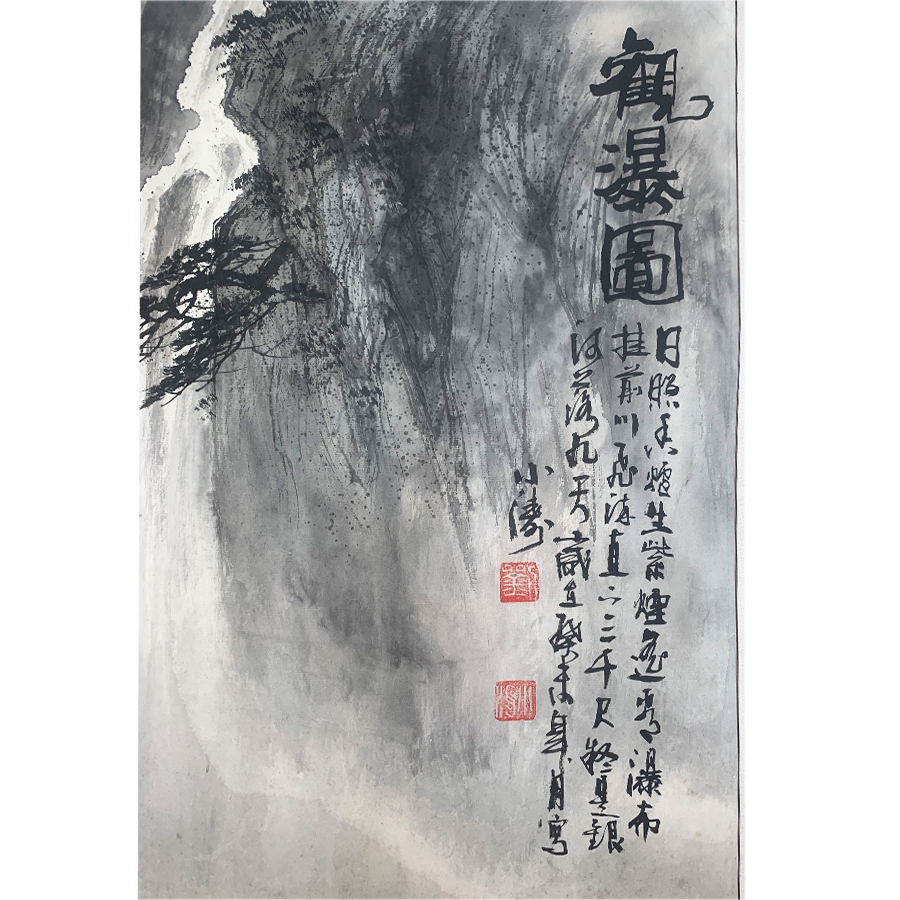 觀瀑圖
日照香爐生紫煙遙看瀑布
挂前川飛流直下三千尺疑是銀
河落九天歲在癸未皋月寫
小濤